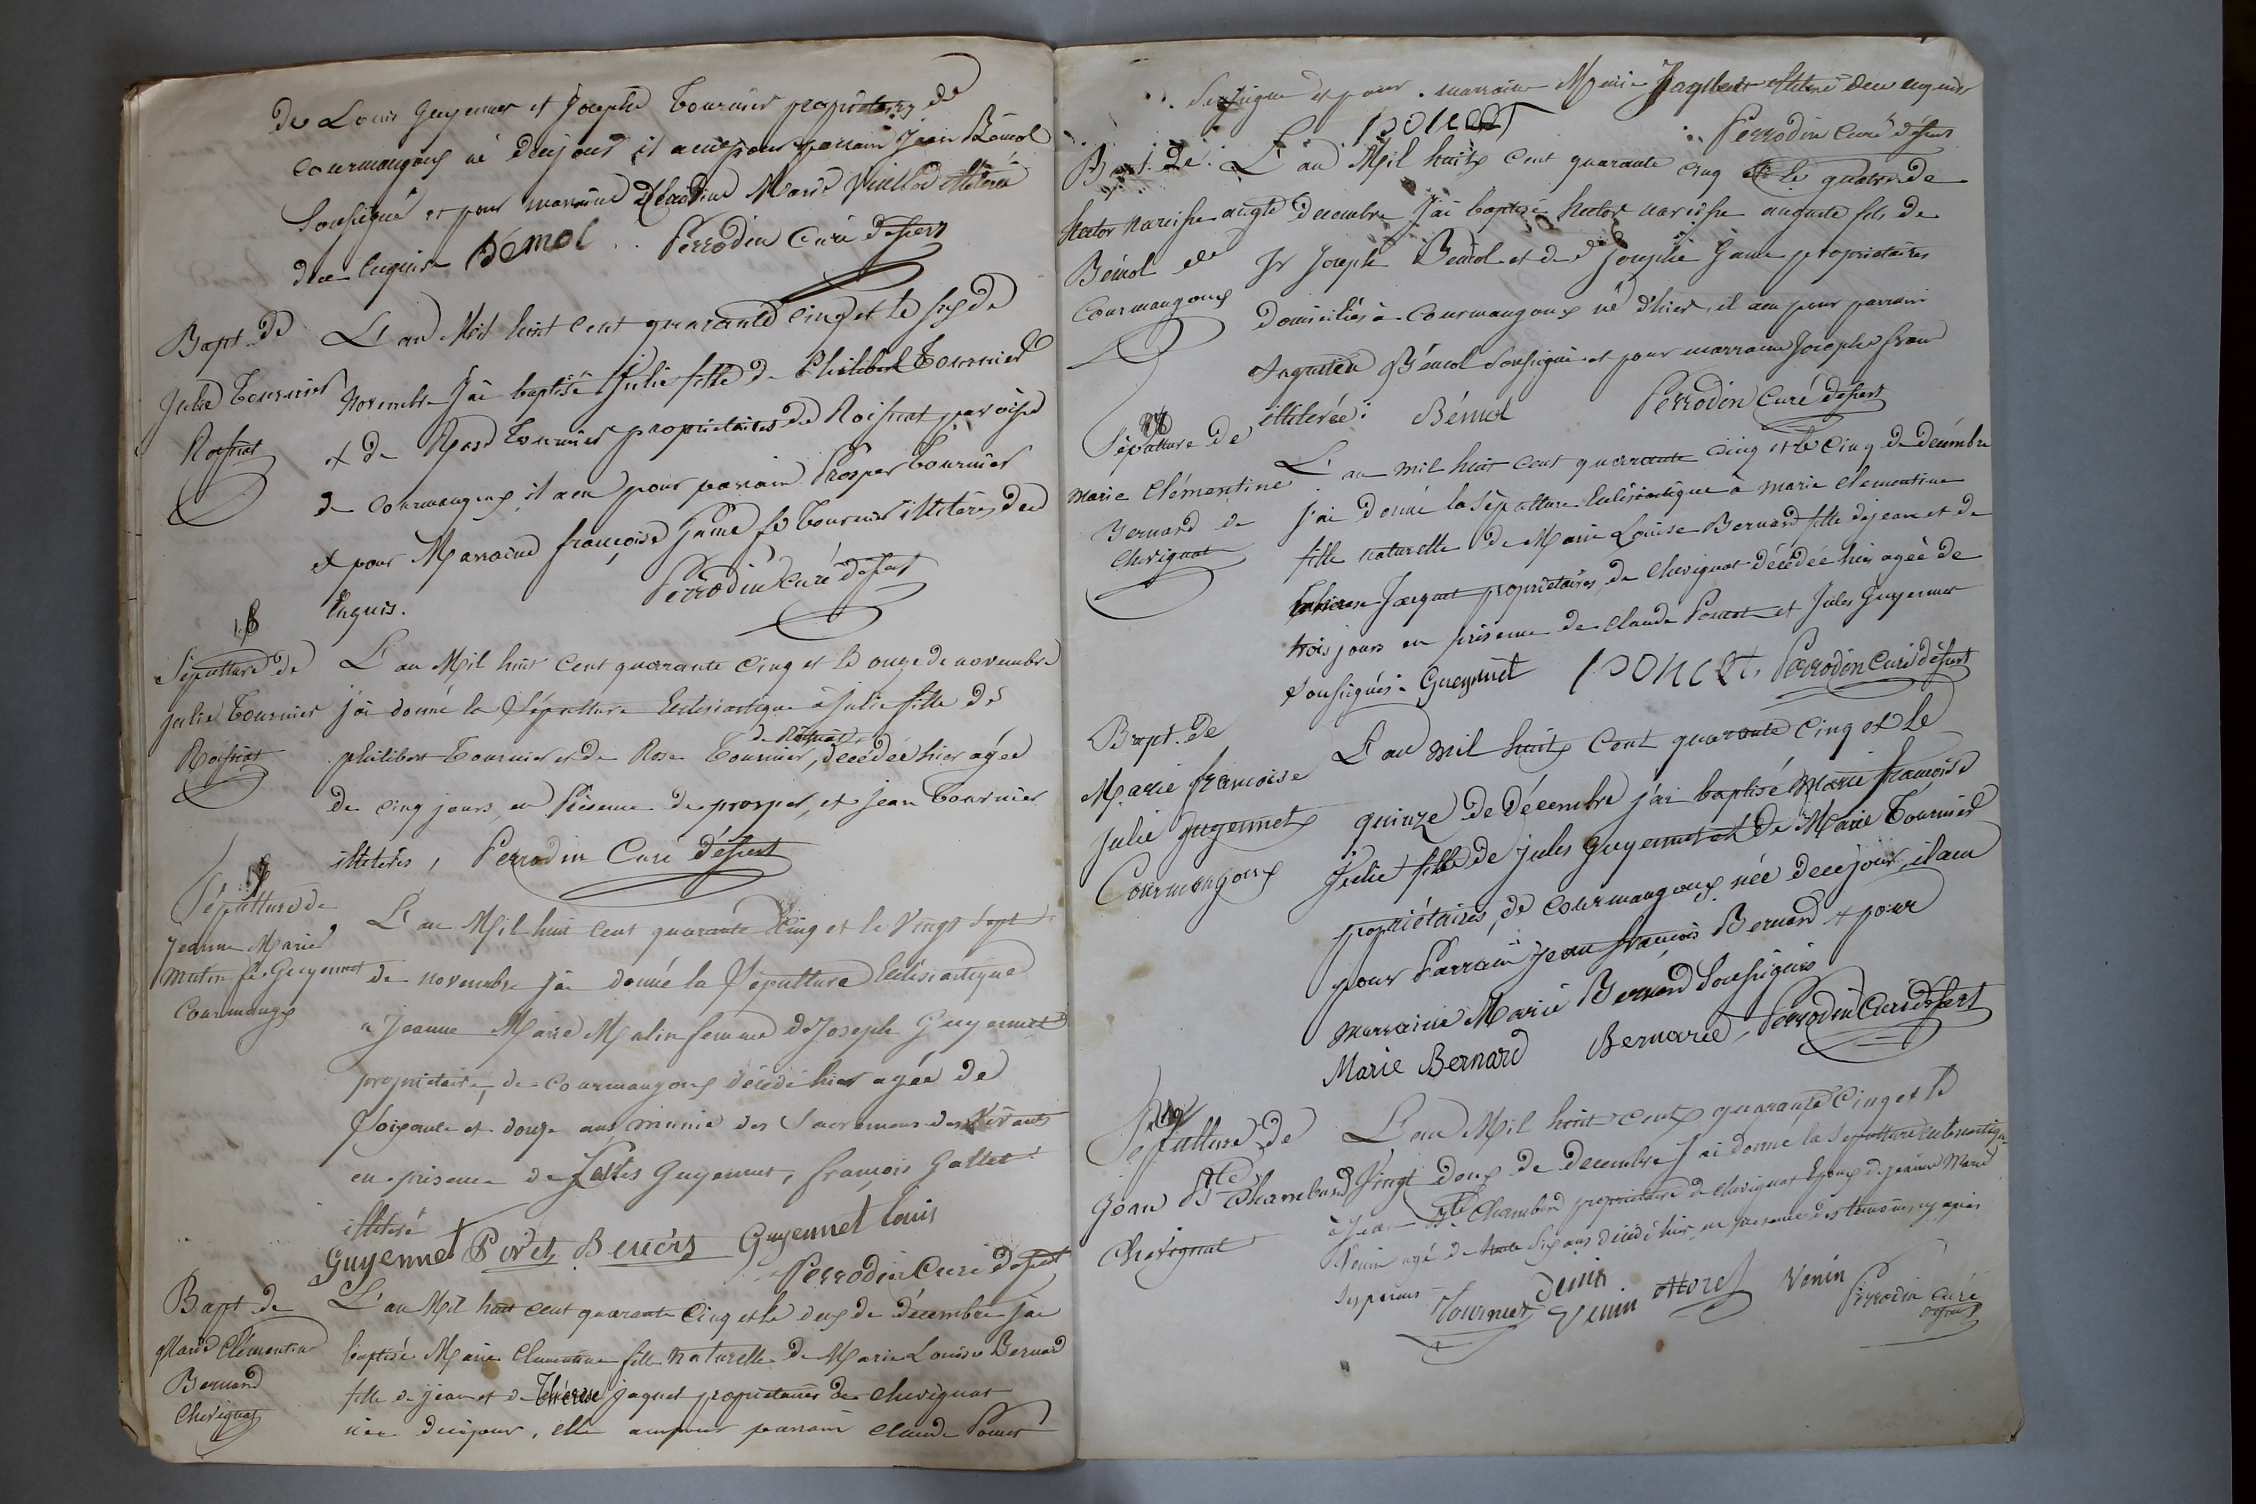 de Louis Guyennet et Josephe Tournier propriétaires de
Courmangoux né de ce jour, il a eu pour parrain Jean Bémol
Soussigné et pour marraine Claudine Marie illiterée
de ce enquise Bémol Perrodin Curé défsert
Bapt. de
Julie Tournier
Roissiat
L'an Mil huit cent quarante cinq et le six de
Novembre J'ai baptisé Julie fille de Philibert Tournier
et de Rose Tournier propriétaires de Roissiat paroisse
de Courmangoux, il a eu pour parrain Prosper Tournier
et pour Marraine françoise Game fe Tournier illiterés de ce
Enquis. Perrodin Curé défsert
Sépulture de
Julie Tournier
Roissiat
L'an Mil huit cent quarante cinq et le onze de novembre
j'ai donné la Sépulture Ecclésiastique à Julie fille de
de Roissiat
philibert Tournier et de Rose Tournier, décédée hier agée
de cinq jours, en Présence de prosper, et Jean Tournier
illiterés, Perrodin Curé défsert
Sépulture de
Jeanne Marie
Mutin fe Guyennet
Courmangx
L'an Mil huit cent quarante Cinq et le Vingt Sept
de novembre j'ai donné la Sépulture Ecclésiastique
à Jeanne Marie Mutin femme de Joseph Guyennet
propriétaire, de Courmangoux décédé hier agée de
soixante et douze ans munie des Sacremens des Vivants
en présence de Jules Guyennet, françois Gallet
illiteré
Guyennet Bévérs Guyennet Louis
Perrodin Curé défsert
Bapt. de
Marie Clémentine
Bernard
Chevignat
L'an Mil huit cent quarante Cinq et le deux de décembre j'ai
baptisé Marie Clementine fille naturelle de Marie Louise Bernard
fille de jean et de Thérèse jaquet propriétaires de Chevignat
née de ce jour, elle a eu pour parrain Claude Poncet
Soussigné et pour marraine Marie illiterée de ce enquise
Poncet Perrodin Curé défsert
Bapt. De
hector narcisse augte
Bémol de
Courmangoux
L'an Mil huit cent quarante cinq et le quatre de
decembre J'ai baptisé hector narcisse auguste fils de
Sr Joseph Bémol et de de Josephe Game propriétaires
domiciliés à Courmangoux né d'hier, il a eu pour parrain
Augustin Bémol Soussigné et pour marraine Josephe
illiterée: Bémol Perrodin Curé défsert
Sépulture de
Marie Clémentine
Bernard de
Chevignat
L'an mil huit cent quarante cinq et le Cinq de decembre
j'ai donné la Sépulture Ecclésiastique à marie Clementine
fille naturelle de Marie Louise Bernard fille de jean et de
thérèse Jacquet propriétaires, de Chevignat décédée hier agée de
trois jours en présence de claude Poncet et Jules Guyennet
Soussignés: Guyennet Poncet, Perrodin Curé défsert
Bapt. de
Marie françoise
Julie guyennet
Courmangoux
L'an mil huit cent quarante Cinq et le
quinze de décembre j'ai baptisé Marie françoise
Julie fille de jules Guyennet et de Marie Tournier
propriétaires, de Courmangoux née de ce jour, il a eu
pour Parrain Jean françois Bernard et pour
marraine Marie Bernard Soussignés
Marie Bernard Bernard, Perrodin Curé défsert
Sépulture de
jean Bte Chambard
Chevignat
L'an Mil huit cent quarante Cinq et le
Vingt Deux de decembre J'ai donné la Sépulture Ecclésiastique
à Jean Bte Chambard propriétaire de Chevignat Epoux de jeanne Marie
Venin agé de Six ans décédé hier en présence des témoins cy après
Tournier Venin Morel Venin Perrodin Curé
défsert